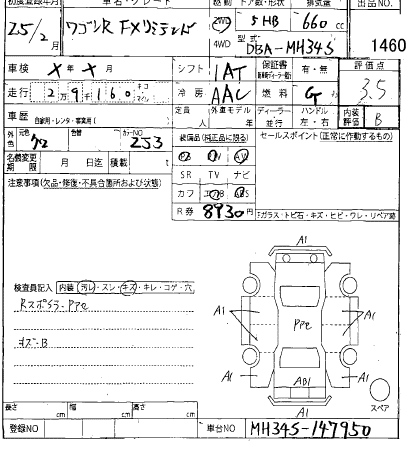 初度登録年月 車名・グレード 駆動 ドア数・形状 排気量 出品NO.
25/2月 ワゴンR FXリミテッド 2WD 5HB 660cc
4WD 型式 DBA-MH34S 1460
車検 X年X月 シフト 1AT 保証書 有・無 評価点
走行 2万9千160 キロ マイル 冷房 AAC 燃料 G 3.5
車歴 自家用・レンタ・事業用( 定員 人 外車モデル 年 ディーラー 並行 ハンドル 左・右 内装評価 B
外色 元色 クロ 色替 カラーNO 253 装備品(純正品に限る) セールスポイント(正常に作動するもの)
名義変更期限 月 日迄 積載 t SR TV ナビ
注意事項(欠品・修復・不具合箇所および状態) カワ エアB ABS
R券 8930円 ガラス・トビ石・キズ・ヒビ・ワレ・リペア跡
A1
検査員記入 内装 汚レ・スレ・キズ・キレ・コゲ・穴
Rスポラ-Pアセ
A1 Pアセ A1
キズ-B
A1 AB1 A1
A1
スペア
長さ cm 幅 cm 高さ cm
登録NO 車台NO MH34S-147950